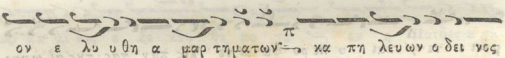 ον ε λυ υ θη α μαρ τηματων π κα πη λευων ο δει νος